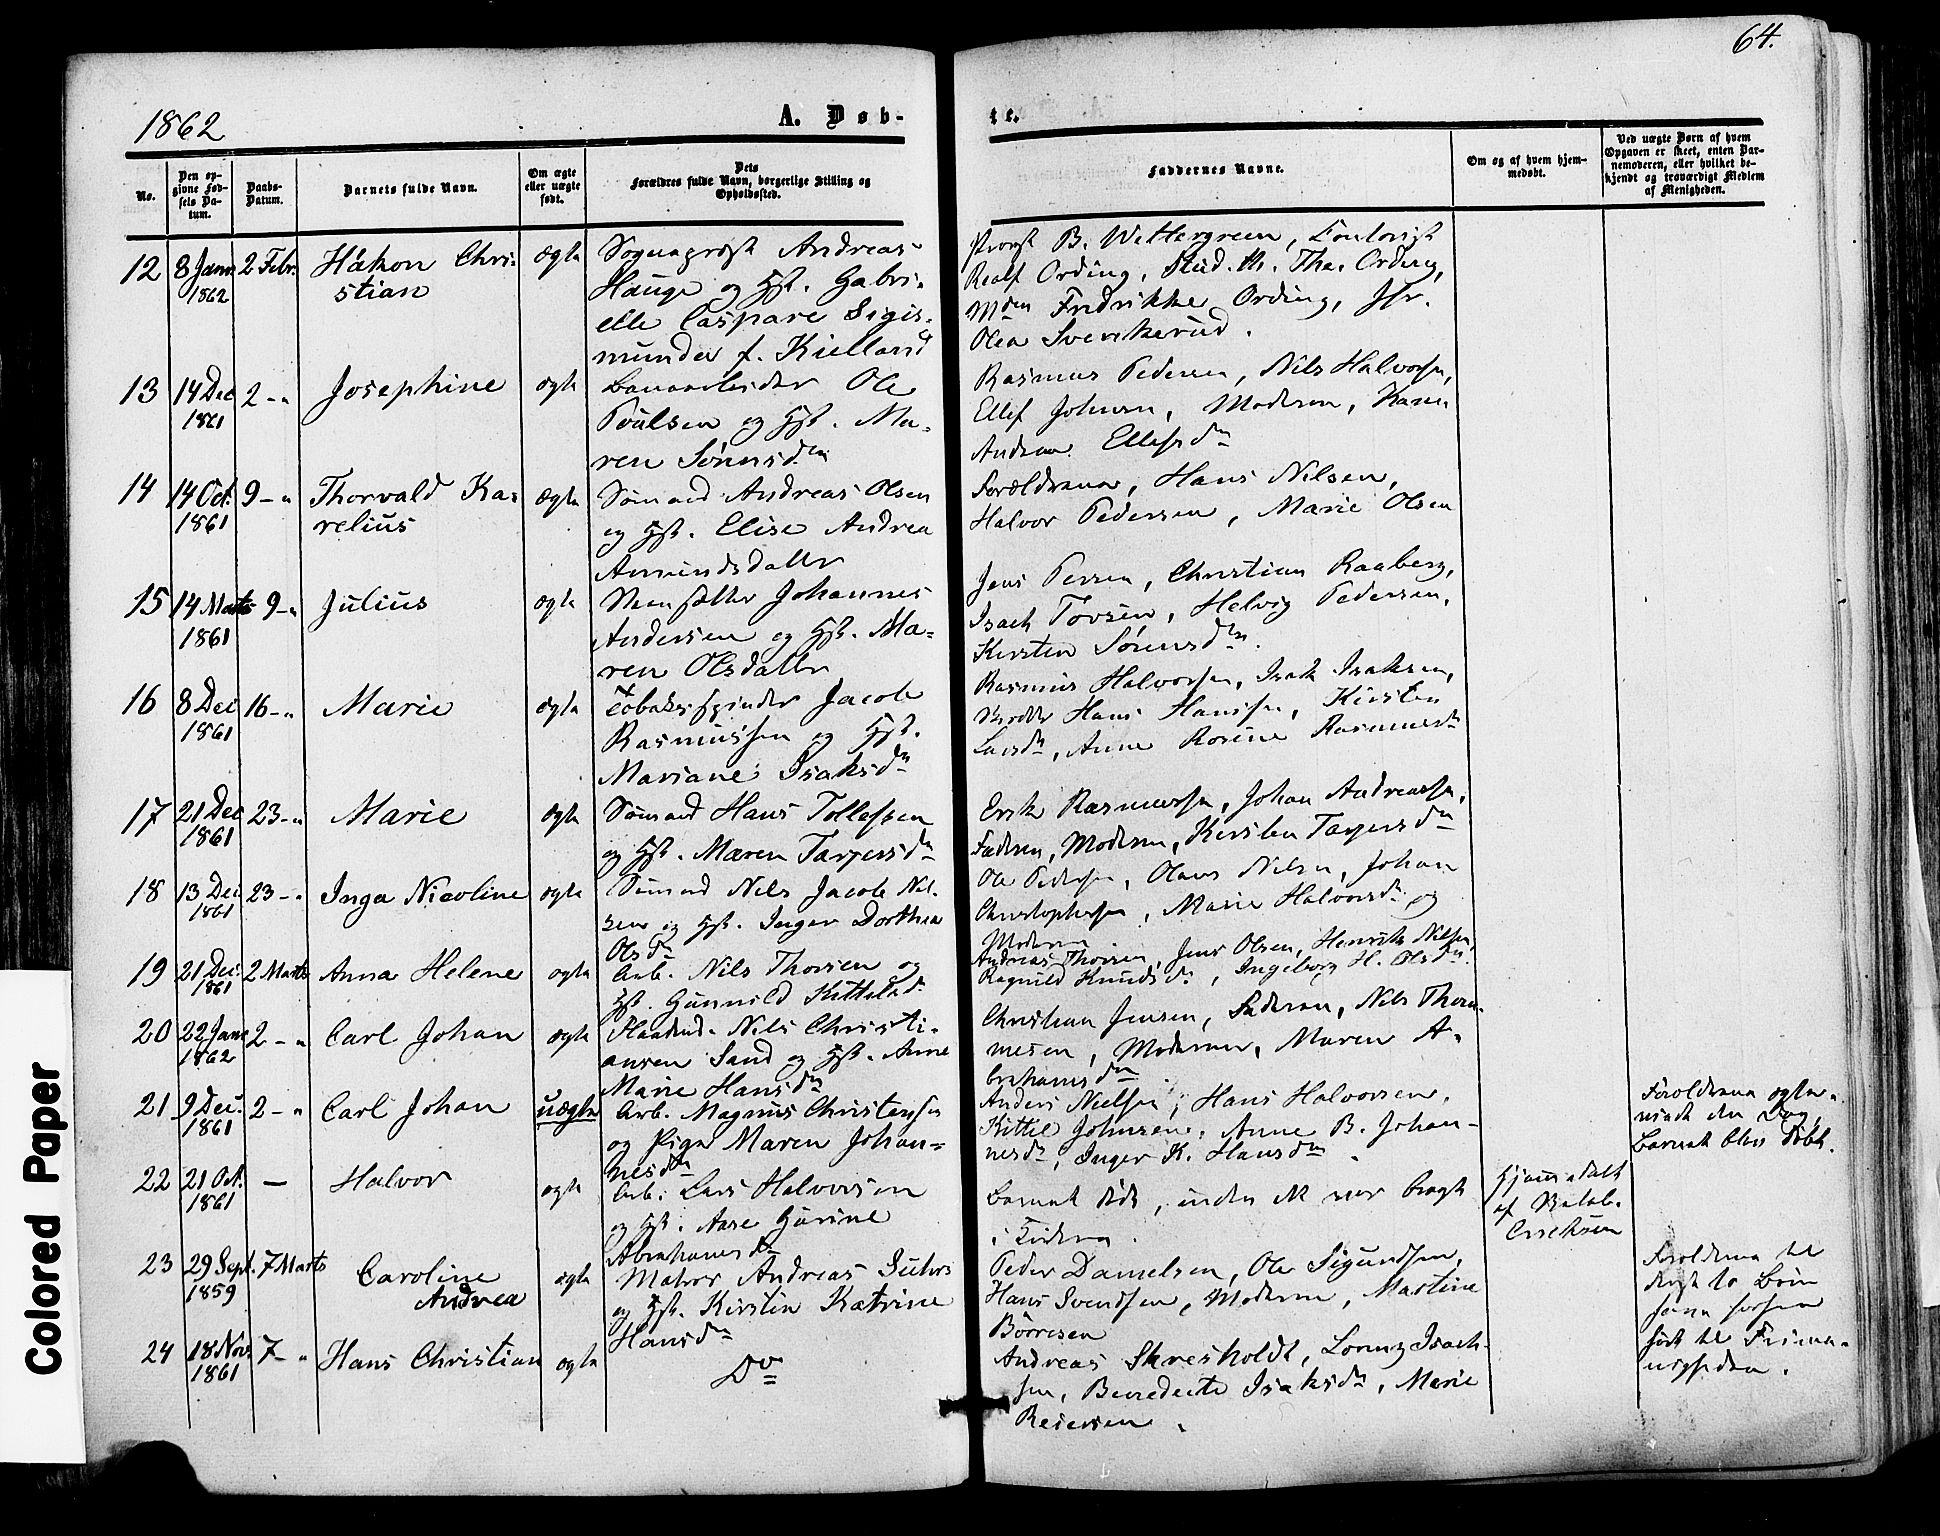 64.
1862
A. Døb-
te.
No.
Den op-
givne Fød-
sels Da-
tum.
Daabs-
Datum.
Barnets fulde Navn.
Om ægte
eller uægte
født.
Dets
Forældres fulde Navn, borgerlige Stilling og
Opholdssted.
Faddernes Navne.
Om og af hvem hjem-
medøbt.
Ved uægte Børn af hvem
Opgaven er skeet, enten Bar-
nemoderen, eller hvilket be-
kjendt og troværdigt Medlem
af Menigheden.
12 8 Janr 1862 2 Febr. Håkon Chri-
stian
ægte
Sogneprest Andreas
Hauge og Hst. Gabri-
elle Caspare Sigis-
munda f. Kielland
Provst B. Wettergreen,
Realf Ording, Stud. th. Ths. Ording,
Mdm Fredrikke Ording, Jfr.
Olea Svenkerud.
13 14 Dec 1861 2 - " Josephine ægte
Banearbeider Ole
Poulsen og Hst. Ma-
ren Sönnsdtn
Rasmus Pedersen, Nils Halvorsen,
Ellef Johnsen, Moderen, Karen
Andrea Ellefsdtn
14 14 Oct. 1861 9 - " Thorvald Ka-
relius
ægte
Sömand Andreas Olsen
og Hst. Elise Andrea
Amundsdatter
Forældrene, Hans Nilsen,
Halvor Pedersen, Marie Olsen
15 14 Marts 1861 9 - " Julius ægte
Steensætter Johannes
Andersen og Hst. Ma-
ren Olsdatter
Jens Persen, Christian Raaberg,
Isach Torsen, Helvig Pedersen,
Kirsten Sörensdtr.
16 8 Dec 1861 16 - " Marie ægte
Tobaksspinder Jacob
Rasmussen og Hst.
Mariane Isaksdtn
Rasmus Halvorsen, Isak Isaksen,
Hans Hanssen, Kirsten
Larsdtn, Anne Rosine Rasmusdtn
17 21 Dec 1861 23 - " Marie ægte
Sömand Hans Tollefsen
og Hst. Maren Targersdtn
Erik Rasmussen, Johan Andreassen,
Faderen, Moderen, Kirsten Targersdtn
18 13 Dec 1861 23 - " Inga Nicoline ægte
Sömand Nils Jacob Nil-
sen og Hst. Inger Dorthea
Olsdtn
Ole Pedersen, Olaus Nilsen, Johan
Christophersen, Marie Halvorsdtr og
Moderen
19 21 Dec. 1861 2 Marts Anna Helene ægte
Arb. Nils Thorsen og
Hst. Gunnild Kittelsd.
Andreas Thorsen, Jens Olsen, Henrik Nilsen,
Ragnild Knudsdtr, Ingeborg H. Olsdtn
20 22 Janr 1862 2 - " Carl Johan ægte
Nils Christi-
ansen Sand og Hst. Anne
Marie Hansdtn
Christian Jensen, Faderen, Nils Thom-
mesen, Moderen, Maren A-
brahamsdtn
21 9 Dec. 1861 2 - " Carl Johan uægte
Arb. Magnus Christensen
og Pige Maren Johan-
nesdtn
Anders Nielsen, Hans Halvorsen,
Kittil Johnsen, Anne B. Johan-
nesdtr, Inger K. Hansdtn.
Forældrene ægte-
viede den Dag,
Barnet blev döbt.
22 21 Oct. 1861 — Halvor ægte
Arb. Lars Halvorsen
og Hst. Aase Gurine
Abrahamsdtr
Barnet döde, inden det var bragt
i Kirken.
Hjemmedöbt
af
Erichsen
23 29 Sept. 1859 7 Marts Caroline
Andrea
ægte
Matros Andreas Suhrs
og Hst. Kirstin Katrine
Hansdtn
Peder Danielsen, Ole Sigurdsen,
Hans Svendsen, Moderen, Martine
Börresen
Forældrene til
disse to Börn
have forhen
hört til Frime-
nigheden.
24 18 Nov. 1861 7 - " Hans Christian ægte
Do
Andreas Skresholdt, Lorenz Isach-
sen, Benedicte Isaksdtn, Marie
Reiersen.
Colored Paper